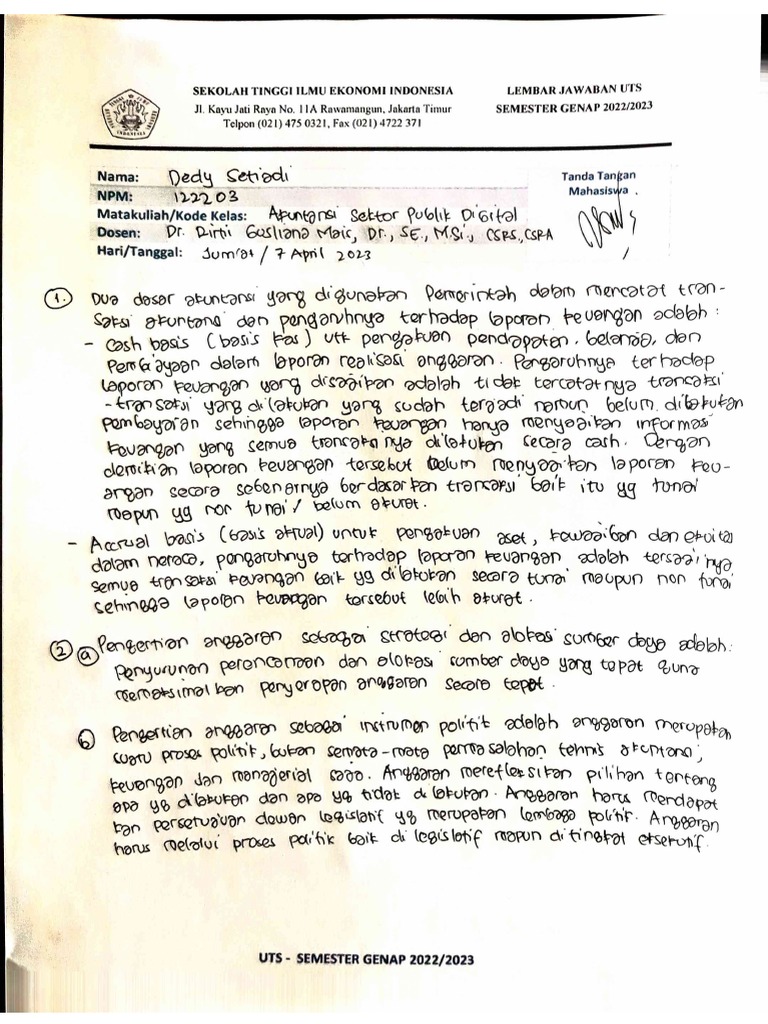 SEKOLAH TINGGI ILMU EKONOMI INDONESIA
Jl. Kayu Jati Raya No. 11A Rawamangun, Jakarta Timur
Telpon (021) 475 0321, Fax (021) 4722 371
LEMBAR JAWABAN UTS
SEMESTER GENAP 2022/2023
Nama: Dedy Setiadi
NPM: 122203
Matakuliah/Kode Kelas: Akuntansi Sektor Publik Digital
Dosen: Dr. Rirti Gusliana Mais, Dr., SE., M.Si., CSRS., CSRA
Hari/Tanggal: Jum'at / 7 April 2023
Tanda Tangan
Mahasiswa
1. Dua dasar akuntansi yang digunakan Pemerintah dalam mencatat tran-
saksi akuntansi dan pengaruhnya terhadap laporan keuangan adalah :
- Cash basis (basis kas) utk pengakuan pendapatan, belanja, dan
pembiayaan dalam laporan realisasi anggaran. Pengaruhnya terhadap
laporan keuangan yang disajikan adalah tidak tercatatnya transaksi
-transaksi yang dilakukan yang sudah terjadi namun belum dilakukan
pembayaran sehingga laporan keuangan hanya menyajikan informasi
keuangan yang semua transaksinya dilakukan secara cash. Dengan
demikian laporan keuangan tersebut belum menyajikan laporan keu-
angan secara sebenarnya berdasarkan transaksi baik itu yg tunai
maupun yg non tunai / belum akurat.
- Accrual basis (basis akrual) untuk pengakuan aset, kewajiban dan ekuitas
dalam neraca, pengaruhnya terhadap laporan keuangan adalah tersajinya
semua transaksi keuangan baik yg dilakukan secara tunai maupun non tunai
sehingga laporan keuangan tersebut lebih akurat.
2. a Pengertian anggaran sebagai strategi dan alokasi sumber daya adalah:
Penyusunan perencanaan dan alokasi sumber daya yang tepat guna
memaksimalkan penyerapan anggaran secara tepat.
b Pengertian anggaran sebagai instrumen politik adalah anggaran merupakan
suatu proses politik, bukan semata-mata permasalahan tehnis akuntansi,
keuangan dan manajerial saja. Anggaran merefleksikan pilihan tentang
apa yg dilakukan dan apa yg tidak dilakukan. Anggaran harus mendapat
kan persetujuan dewan legislatif yg merupakan lembaga politik. Anggaran
harus melalui proses politik baik di legislatif maupun ditingkat eksekutif.
UTS - SEMESTER GENAP 2022/2023